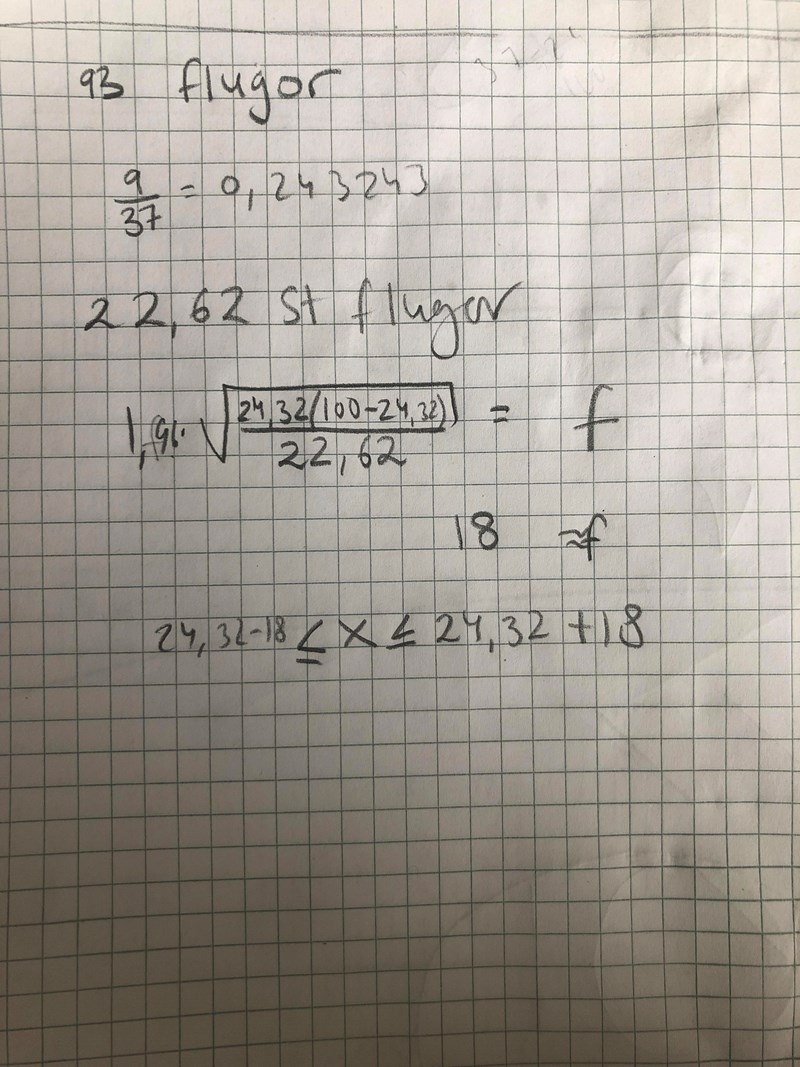 93 flugor
9/37 = 0,243243
22,62 st flugor
1,96· √(24,32(100-24,32)/22,62) = f
18 ≈f
24,32-18 ≤ x ≤ 24,32 +18